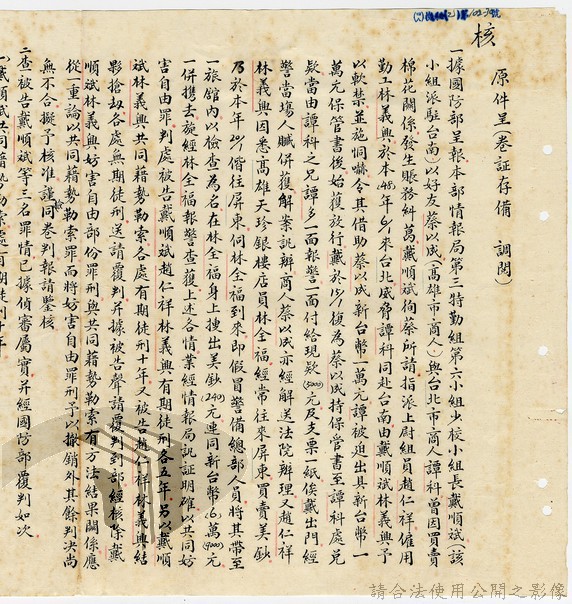 核
原件呈(卷証存備 調閱)
一據國防部呈報本部情報局第三特勤組第六小組少校小組長戴順斌(該
小組派駐台南)以好友蔡以成(高雄市商人)與台北市商人譚科曾因買賣
棉花關係發生賬務糾葛戴順斌徇蔡所請指派上尉組員趙仁祥僱用
勤工林義興於本(48)年 來台北威脅譚科同赴台南由戴順斌林義興予
以軟禁並施恫嚇令其借助蔡以成新台幣一萬元譚被迫出具新台幣一
萬元保管書後始獲放行戴於 復為蔡以成持保管書至譚科處兌
款當由譚科之兄譚 一面報警一面付給現款(5000)元及支票一紙俟戴出門經
警當場人贓併獲解案訊辦商人蔡以成亦經解送法院辦理又趙仁祥
林義興因悉高雄天珍銀樓店員林全福經常往來屏東買賣美鈔
乃於本年 偕往屏東伺林全福到來即假冒警備總部人員將其帶至
一旅館內以檢查為名在林全福身上搜出美鈔(240)元連同新台幣(6)萬(9000)元
一併攜去旋經林全福報警查獲上述各情業經情報局訊証明確以共同妨
害自由罪判處被告戴順斌趙仁祥林義興有期徒刑各五年另以戴順
斌林義興共同藉勢勒索各處有期徒刑十年又被告趙仁祥林義興結
夥搶劫各處無期徒刑送請覆判并據被告聲請覆判到部經核除戴
順斌林義興妨害自由部份罪刑與共同藉勢勒索有方法結果關係應
從一重論以共同藉勢勒索罪而將妨害自由罪刑予以撤銷外其餘判決尚
無不合擬予核准謹同檢卷判報請鑒核
二查被告戴順斌等三名罪情已據偵審屬實并經國防部覆判如次
請合法使用公開之影像